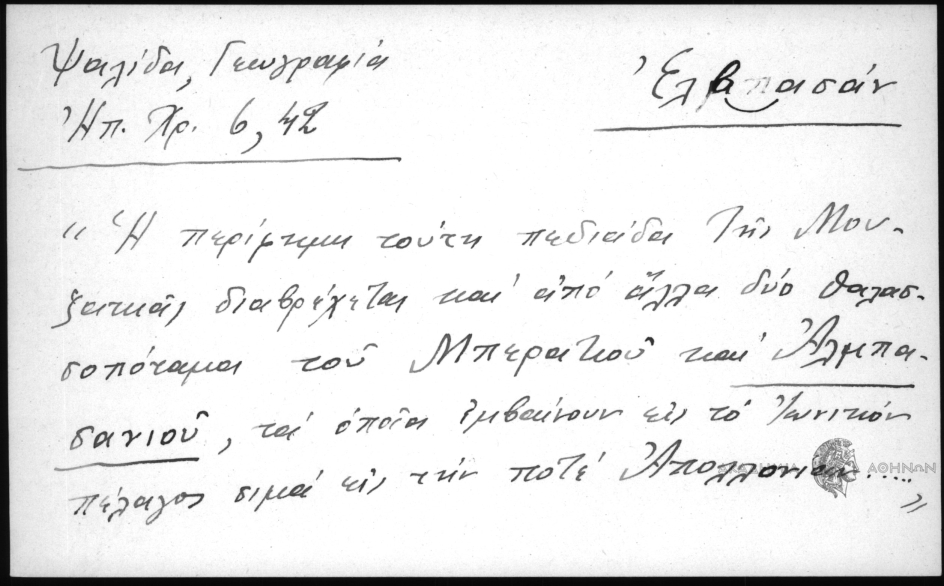 Ψαλίδα, Γεωγραφία
Ἠπ. Χρ. 6, 42
Ἐλβπασάν
"Ἡ περίφημη τούτη πεδιάδα τῆς Μου-
ζακιᾶς διαβρέχεται καί ἀπό ἄλλα δύο θαλασ-
σοπόταμα τοῦ Μπερατιοῦ καί Ἀλμπα-
σανιοῦ, τά ὁποῖα ἐμβαίνουν εἰς τό Ἰωνικόν
πέλαγος σιμά εἰς τήν ποτέ Ἀπολλονίαν....."
ΑΘΗΝΩΝ